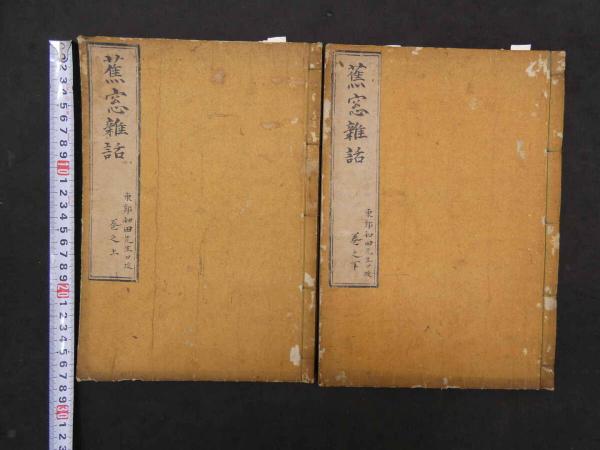 蕉窓雜話
東郭和田先生口授
巻之上
蕉窓雜話
東郭和田先生口授
巻之下
1 2 3 4 5 6 7 8 9 10 1 2 3 4 5 6 7 8 9 20 1 2 3 4 5 6 7 8 9 30 1 2 3